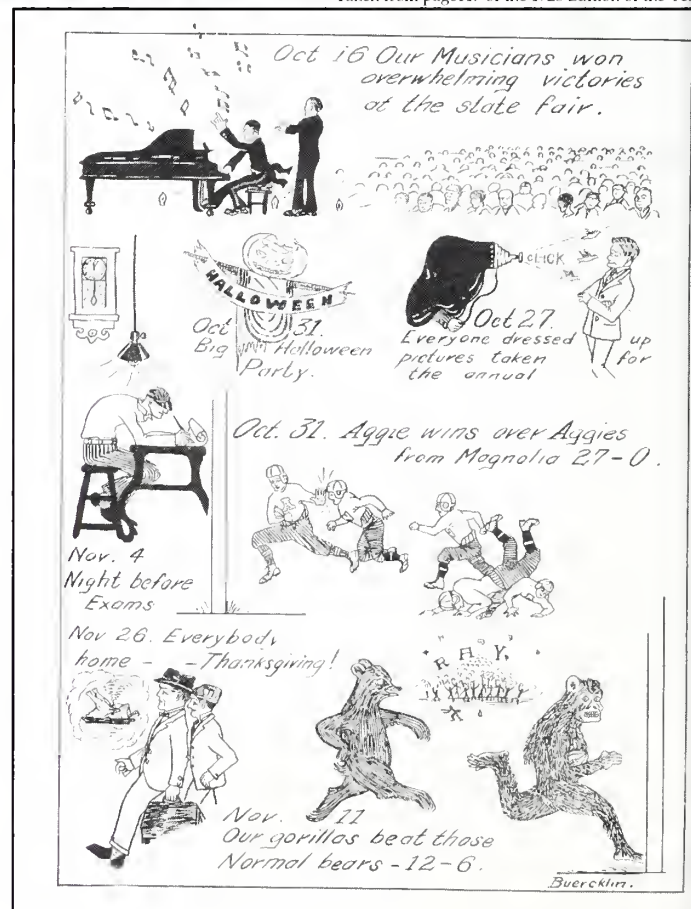 Oct 16 Our Musicians won
overwhelming victories
at the state fair.
CLICK
HALLOWEEN
Oct 31.
Big Halloween
Party.
Oct 27.
Everyone dressed up
pictures taken for
the annual
Oct. 31. Aggie wins over Aggies
from Magnolia 27-0.
A
Nov. 4
Night before
Exams
Nov 26. Everybody
home - - Thanksgiving!
"RAY."
Nov. 11
Our gorillas beat those
Normal bears - 12-6.
Buercklin.